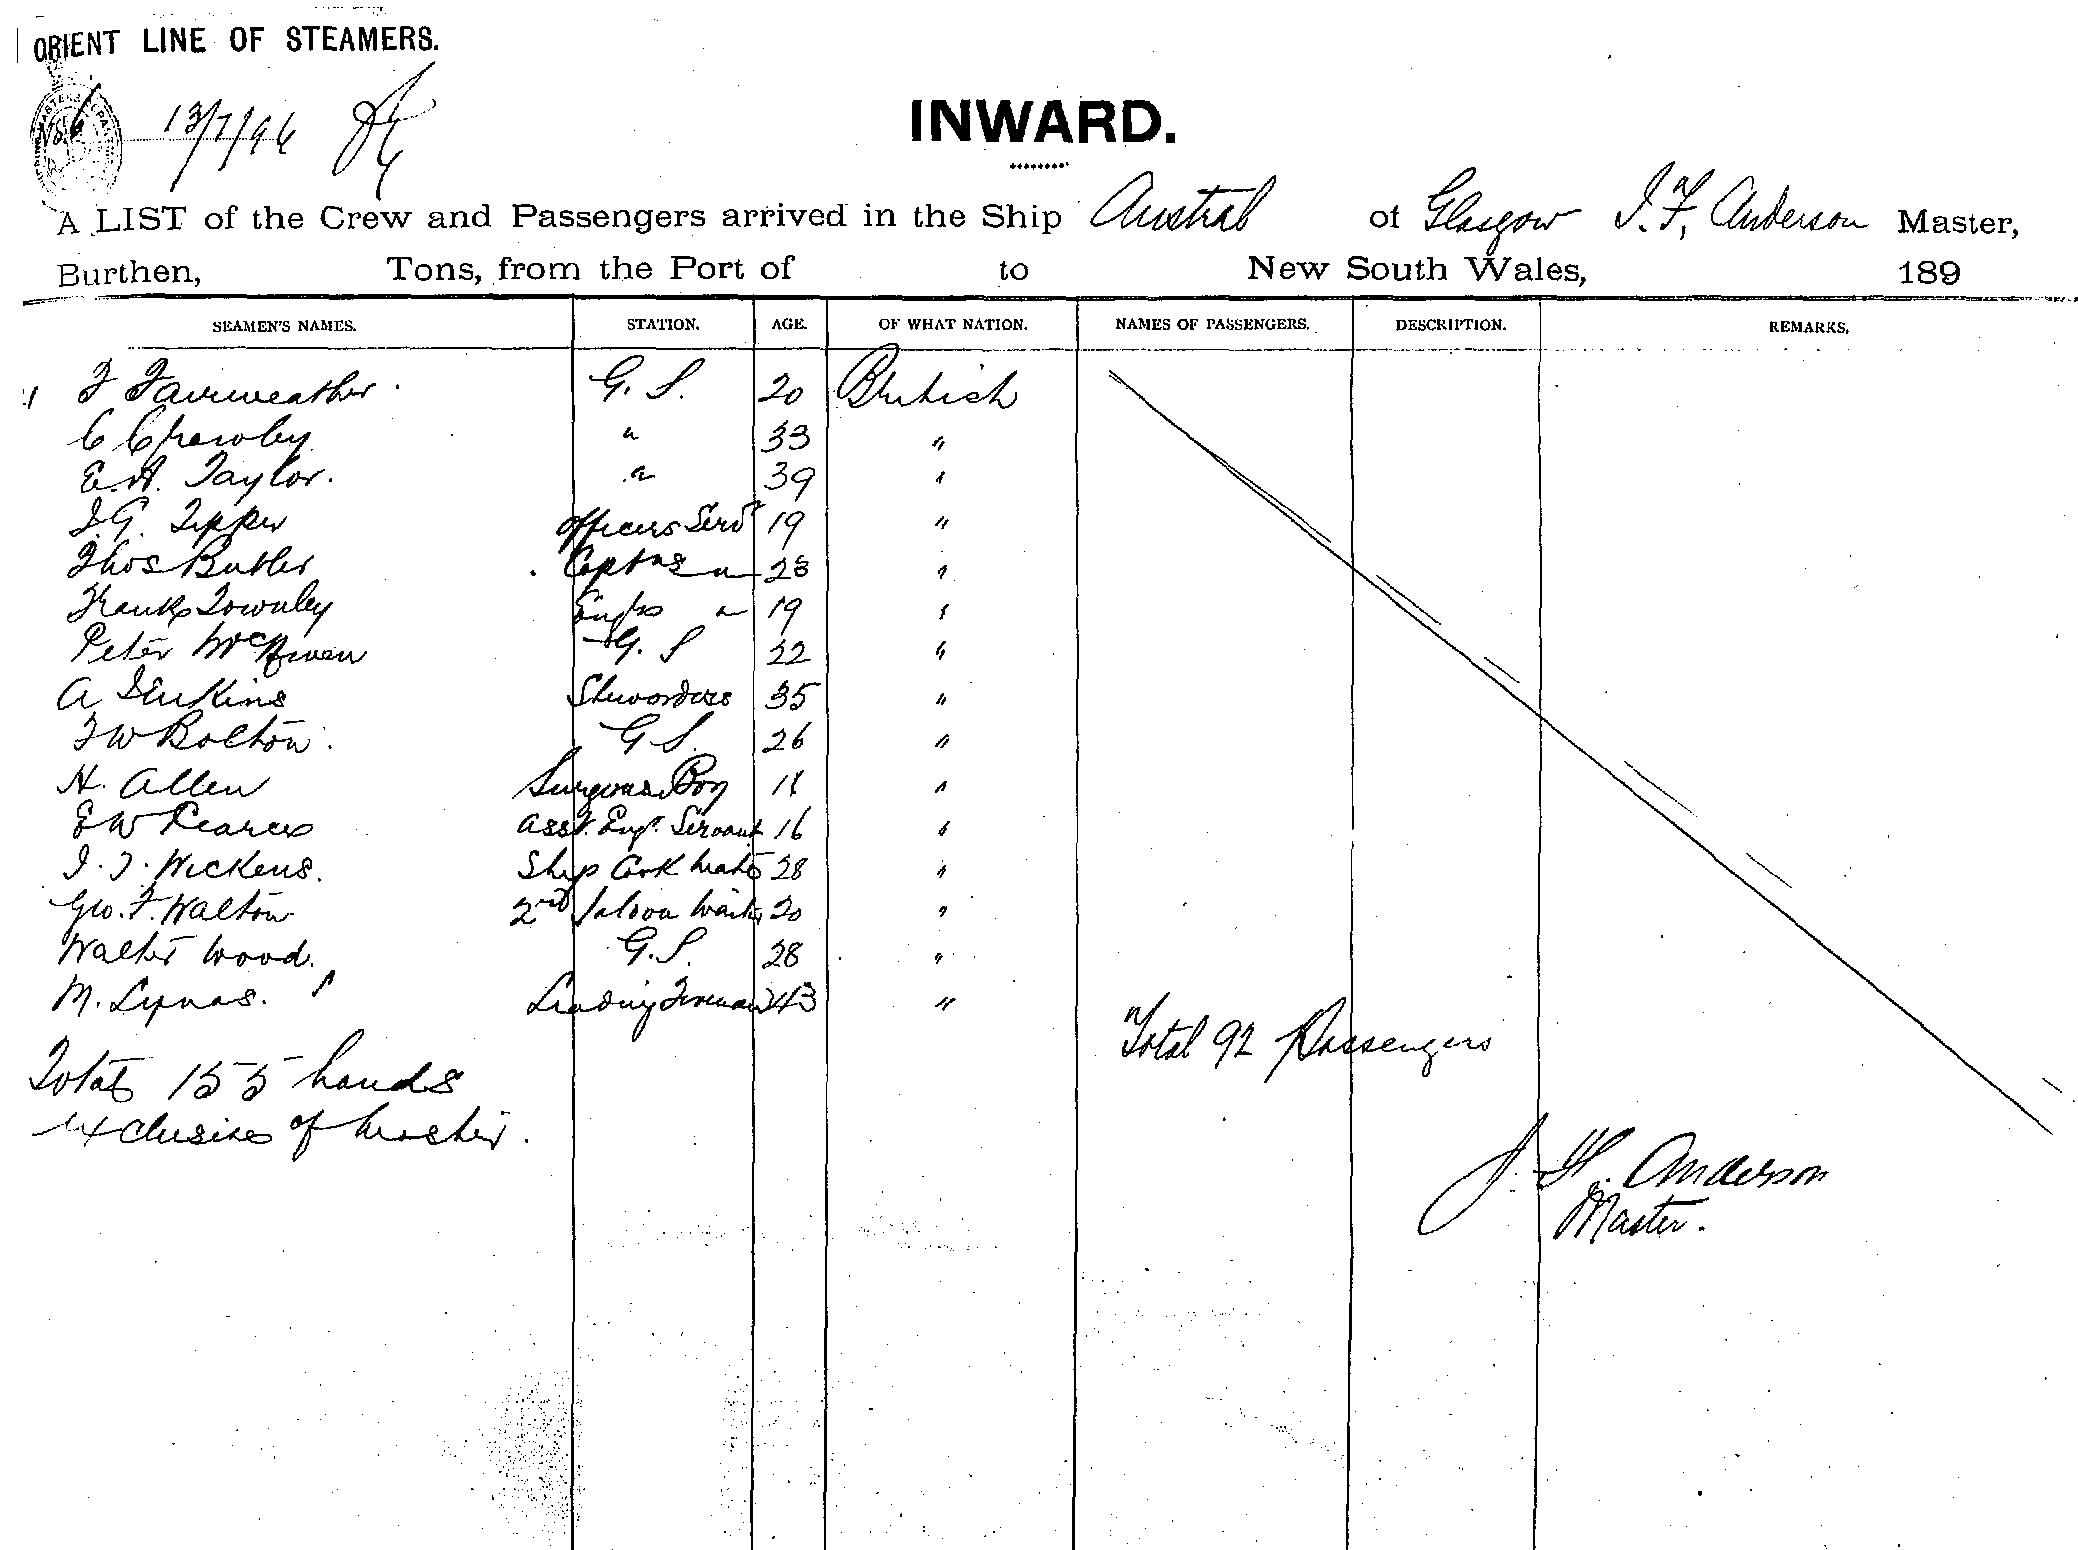 ORIENT LINE OF STEAMERS.
No. 6 13/7/96
INWARD.
A LIST of the Crew and Passengers arrived in the Ship Austral of Glasgow J. F. Anderson Master,
Burthen, Tons, from the Port of to New South Wales, 189
SEAMEN'S NAMES. STATION. AGE. OF WHAT NATION. NAMES OF PASSENGERS. DESCRIPTION. REMARKS.
F Fairweather G. S. 20 British
C Crawley " 33 "
E. A. Taylor. " 39 "
J. G. Tipper Officers Servt 19 "
Thos Butler Captns " 23 "
Frank Townley Engrs " 19 "
Peter McEwen G. S 22 "
A Jenkins Stewardess 35 "
F W Bolton. G S. 26 "
H. Allen Surgeons Boy "
E W Pearce Asst. Engr. Servant 16 "
J. T. Wickens. Ship Cook Mate 28 "
Geo. F. Walton 2nd Saloon Waiter 20 "
Walter Wood. G. S. 28 "
M. Lynas. Leading Fireman 43 "
Total 92 Passengers
Total 155 hands
exclusive of Master.
J. F. Anderson
Master.